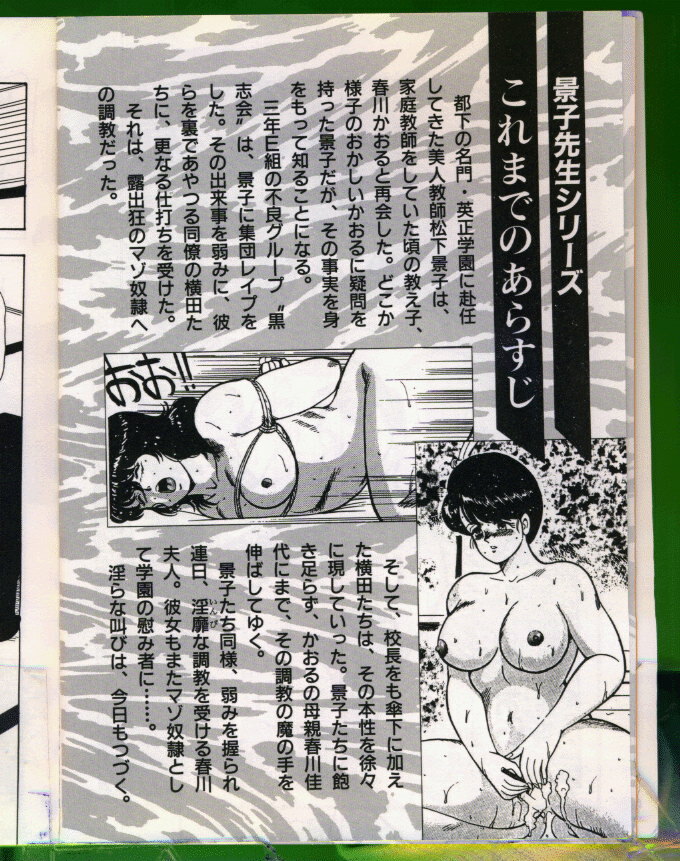 景子先生シリーズ
これまでのあらすじ
都下の名門・英正学園に赴任
してきた美人教師松下景子は、
家庭教師をしていた頃の教え子、
春川かおると再会した。どこか
様子のおかしいかおるに疑問を
持った景子だが、その事実を身
をもって知ることになる。
三年E組の不良グループ〝黒
志会〟は、景子に集団レイプを
した。その出来事を弱みに、彼
らを裏であやつる同僚の横田た
ちに、更なる仕打ちを受けた。
それは、露出狂のマゾ奴隷へ
の調教だった。
おお!!
そして、校長をも傘下に加え
た横田たちは、その本性を徐々
に現していった。景子たちに飽
き足らず、かおるの母親春川佳
代にまで、その調教の魔の手を
伸ばしてゆく。
景子たち同様、弱みを握られ
連日、淫靡な調教を受ける春川
いんび
夫人。彼女もまたマゾ奴隷とし
て学園の慰み者に……。
淫らな叫びは、今日もつづく。